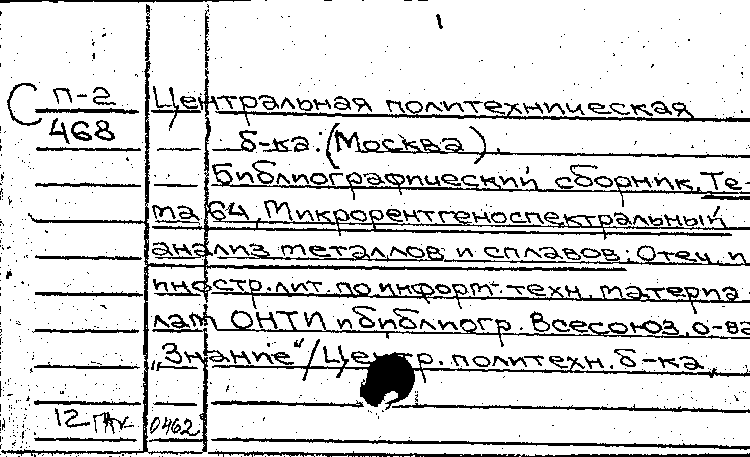 С П-2 Центральная политехническая
468 б-ка. (Москва).
Библиографический сборник. Те-
ма 64. Микрорентгеноспектральный
анализ металлов и сплавов: Отеч. и
иностр. лит. по информ. техн. материа-
лам ОНТИ и библиогр. Всесоюз. о-ва
„Знание“ / Центр. политехн. б-ка.
12 0462